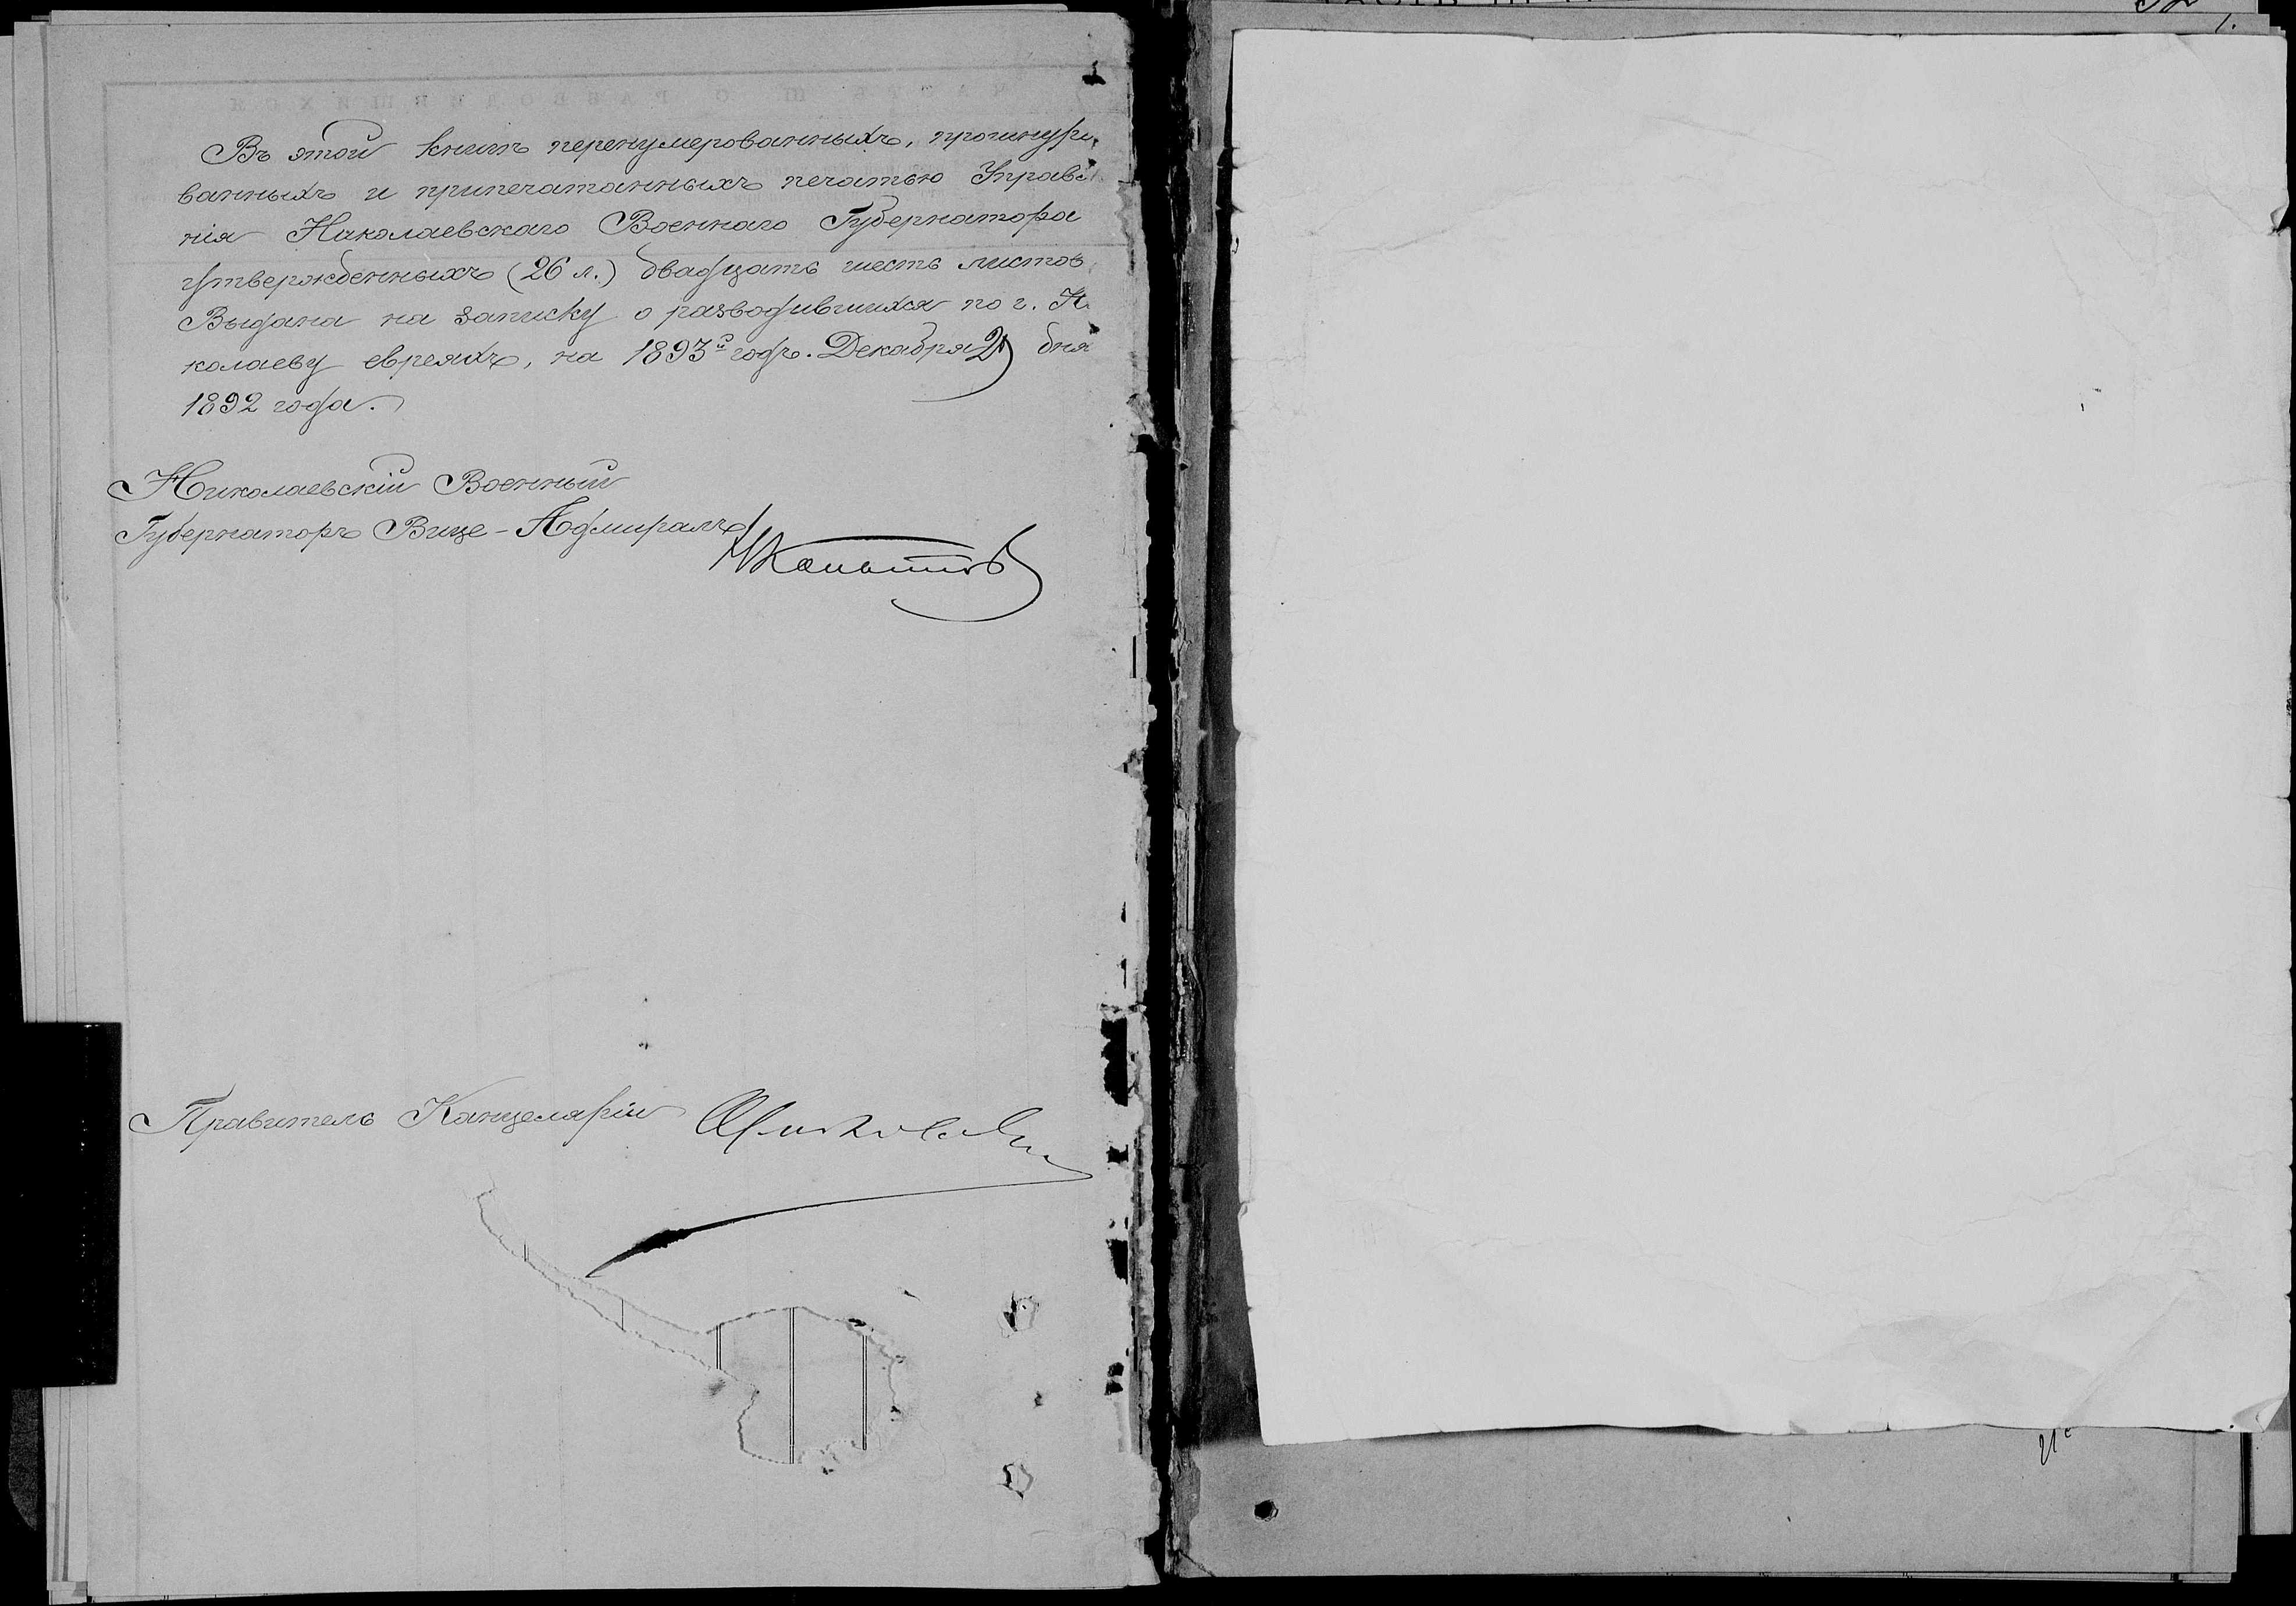 Въ этой книгѣ перенумерованныхъ, прошнуро-
ванныхъ и припечатанныхъ печатью Управле
нія Николаевскаго Военнаго Губернатора
утвержденныхъ (26 л.) двадцать шесть листов
Выдана на записку о разводившихся по г. Н
колаеву евреяхъ, на 1893й годъ. Декабря 21 дня
1892 года.
Николаевскій Военный
Губернаторъ Вице-Адмиралъ
Правитель Канцеляріи